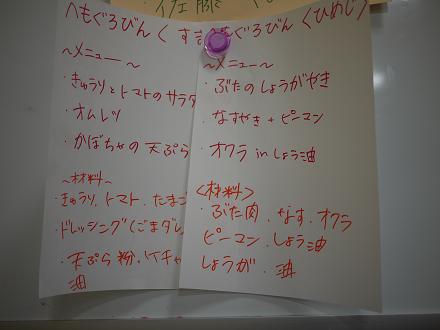 へもぐろびんく すま
～メニュー～
・きゅうりとトマトのサラダ
・オムレツ
・かぼちゃの天ぷら
～材料～
・きゅうり、トマト、たまご
・ドレッシング(ごまダレ
・天ぷら粉、ケチャ
油
もぐろびんく(ひめじ)
～メニュー～
・ぶたのしょうがやき
・なすやき+ピーマン
・オクラinしょう油
<材料>
・ぶた肉、なす、オクラ
ピーマン、しょう油
しょうが、油